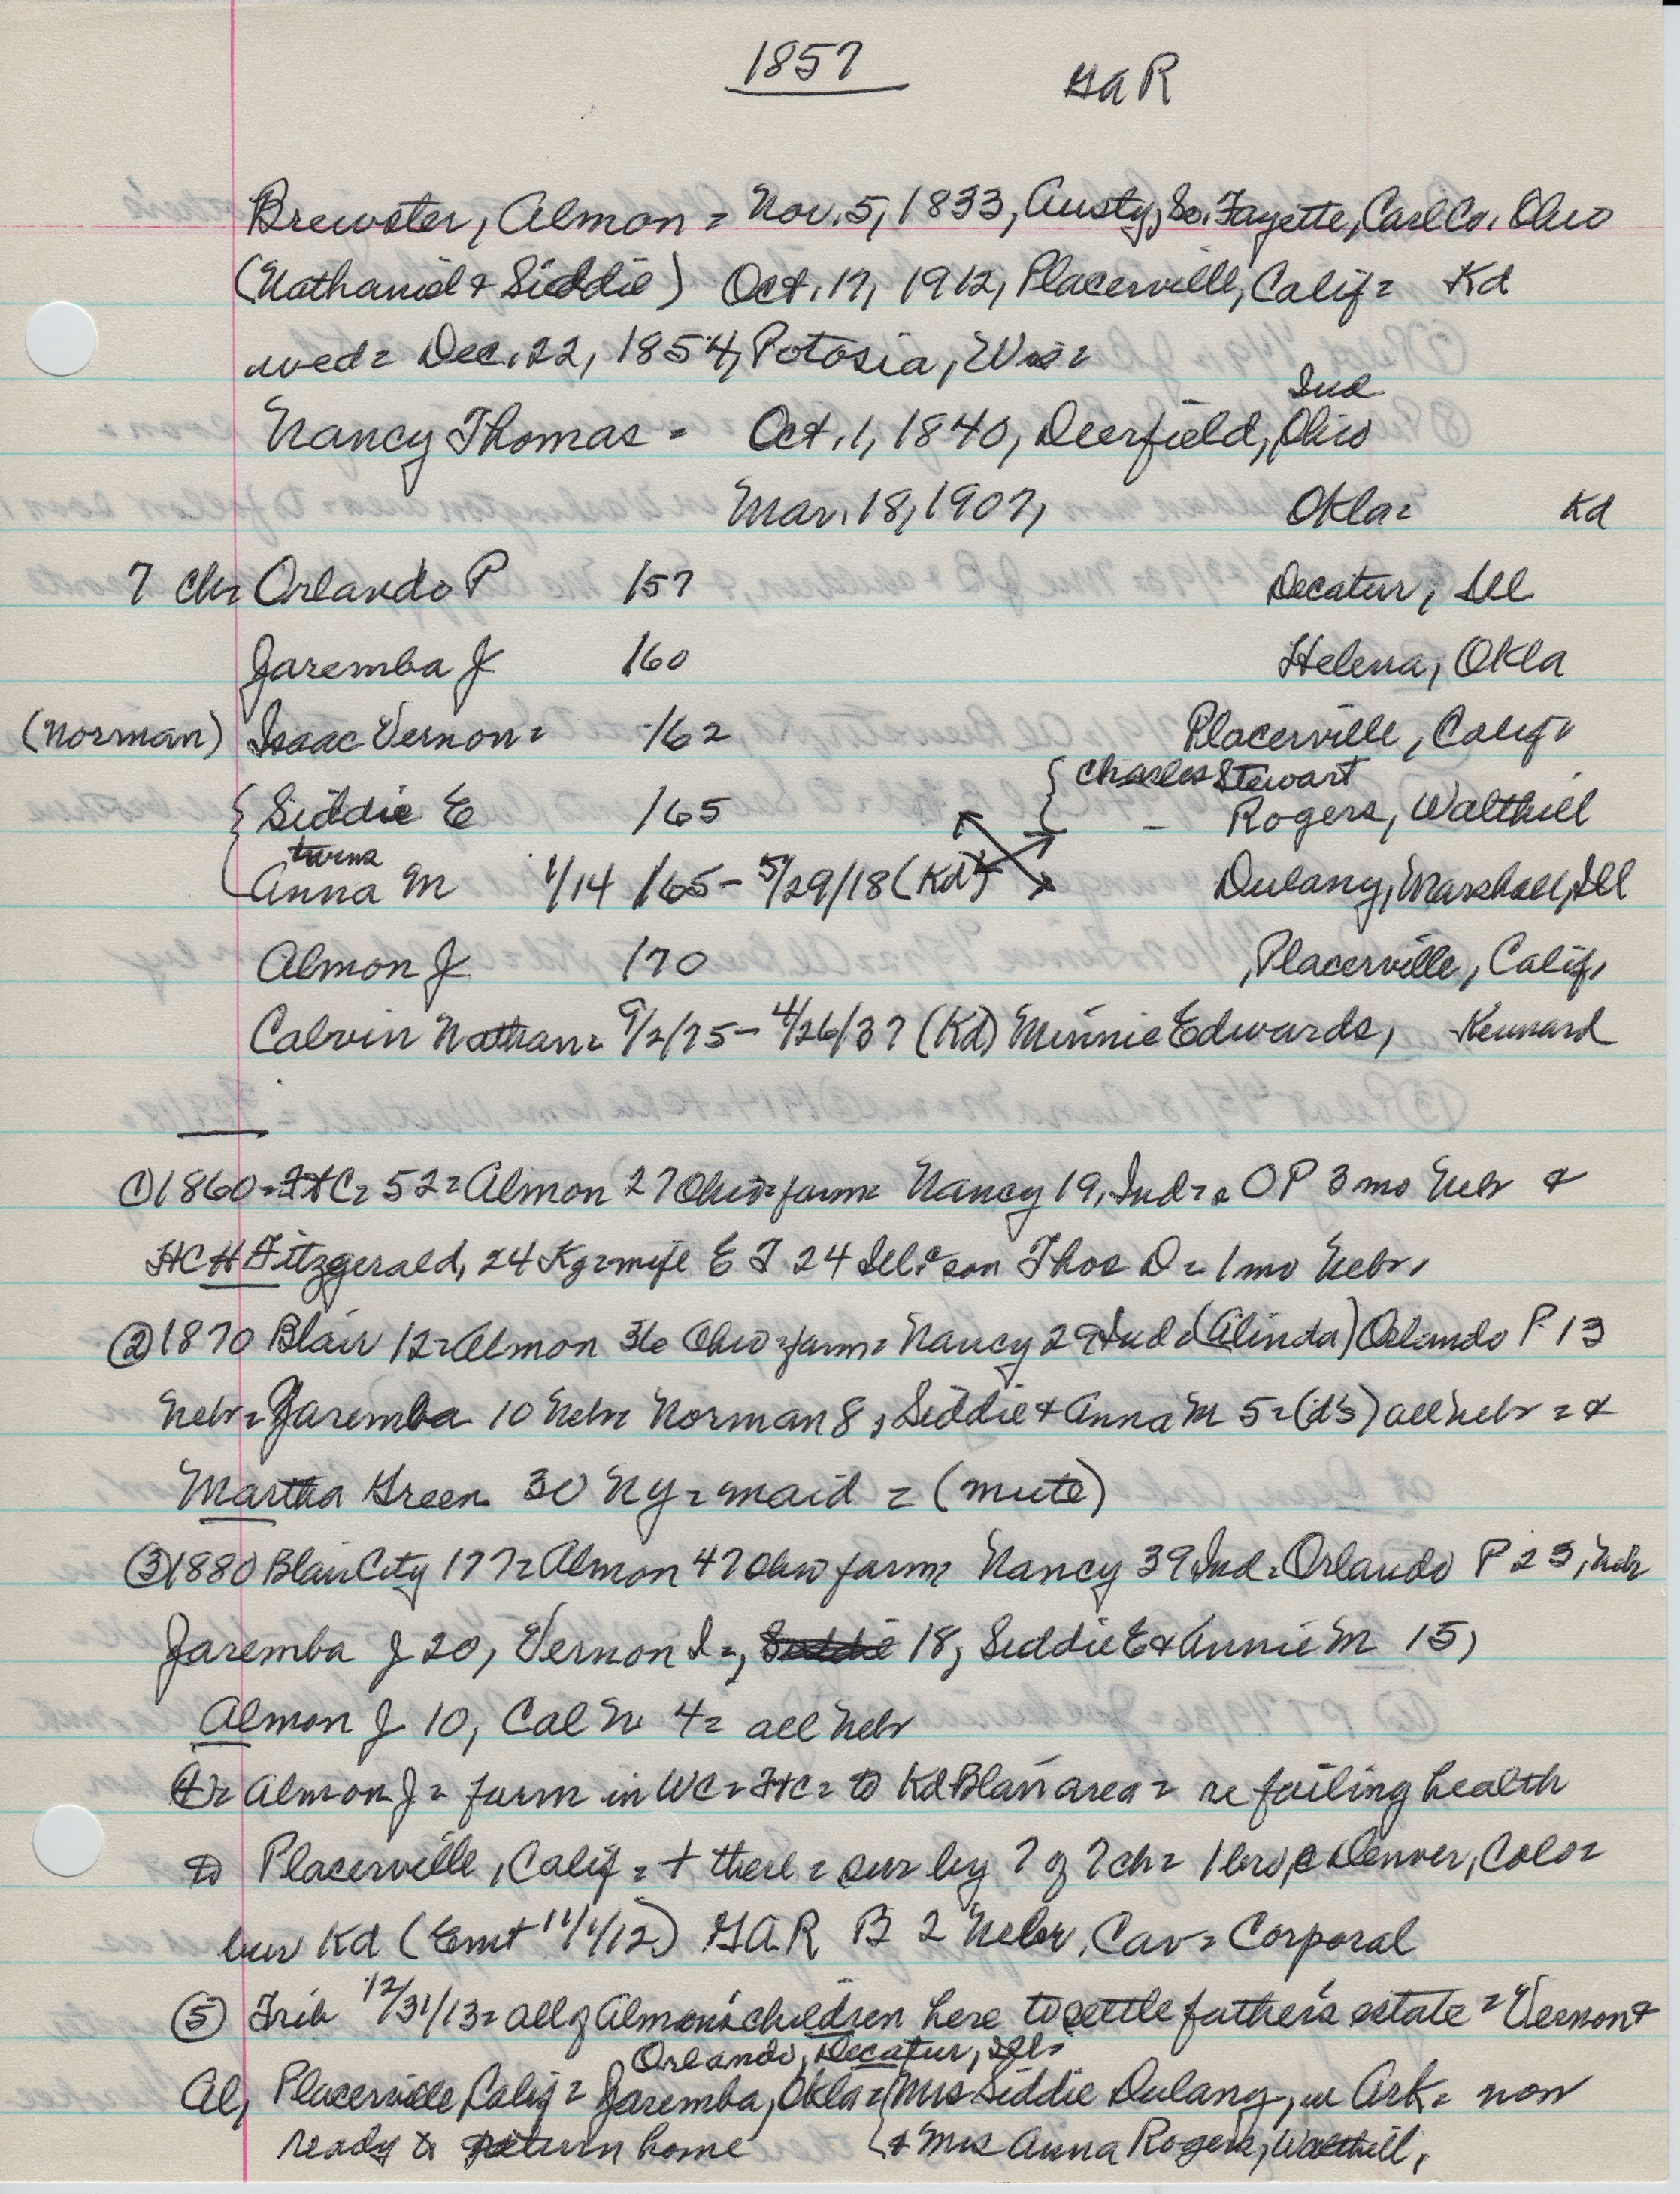 1857 GAR
Brewster, Almon = Nov. 5, 1833, Austy, So. Fayette, Carl Co. Ohio
(Nathaniel & Siddie) Oct. 17, 1912, Placerville, Calif = Kd
wed = Dec. 22, 1854, Potosia, Wis =
Ind
Nancy Thomas = Oct. 1, 1840, Deerfield, Ohio
Mar. 18, 1907, Okla = Kd
7 ch = Orlando P /57 Decatur, Ill
Jaremba J /60 Helena, Okla
(Norman) Isaac Vernon = /62 Placerville, Calif.
{ Charles Stewart
{ Siddie E /65 - Rogers, Walthill
twins
Anna M 1/14 /65 - 5/29/18 (Kd) Dulang, Marshall, Ill
Almon J /70 Placerville, Calif.
Calvin Nathan = 9/2/75 - 4/26/37 (Kd) Minnie Edwards, Kennard
① 1860 = FtC = 52 = Almon 27 Ohio = farm = Nancy 19, Ind = & OP 3 mo Nebr &
HCH Fitzgerald, 24 Ky = wife E J 24 Ill = son Thos D = 1 mo Nebr.
② 1870 Blair 12 = Almon 36 Ohio = farm = Nancy 29 Ind = (Alinda) Orlando P 13
Nebr = Jaremba 10 Nebr = Norman 8, Siddie & Anna M 5 = (d's) all Nebr = &
Martha Green 30 NY = maid = (mute)
③ 1880 Blair City 177 = Almon 47 Ohio farm = Nancy 39 Ind. Orlando P 23, Nebr
Jaremba J 20, Vernon I =, 18, Siddie E & Annie M 15,
Almon J 10, Cal N 4 = all Nebr
④ = Almon J = farm in WC = FtC = to Kd Blair area = re failing health
to Placerville, Calif. = + there = sur by 7 of 7 ch = 1 bro, Denver, Colo =
bur Kd (Ent 11/1/12) GAR B 2 Nebr. Cav = Corporal
⑤ Trib 12/31/13 = all of Almon's children here to settle father's estate = Vernon &
Orlando, Decatur, Ill =
Al, Placerville Calif = Jaremba, Okla = { Mrs Siddie Dulang, Ark = now
ready to return home & Mrs Anna Rogers, Walthill.